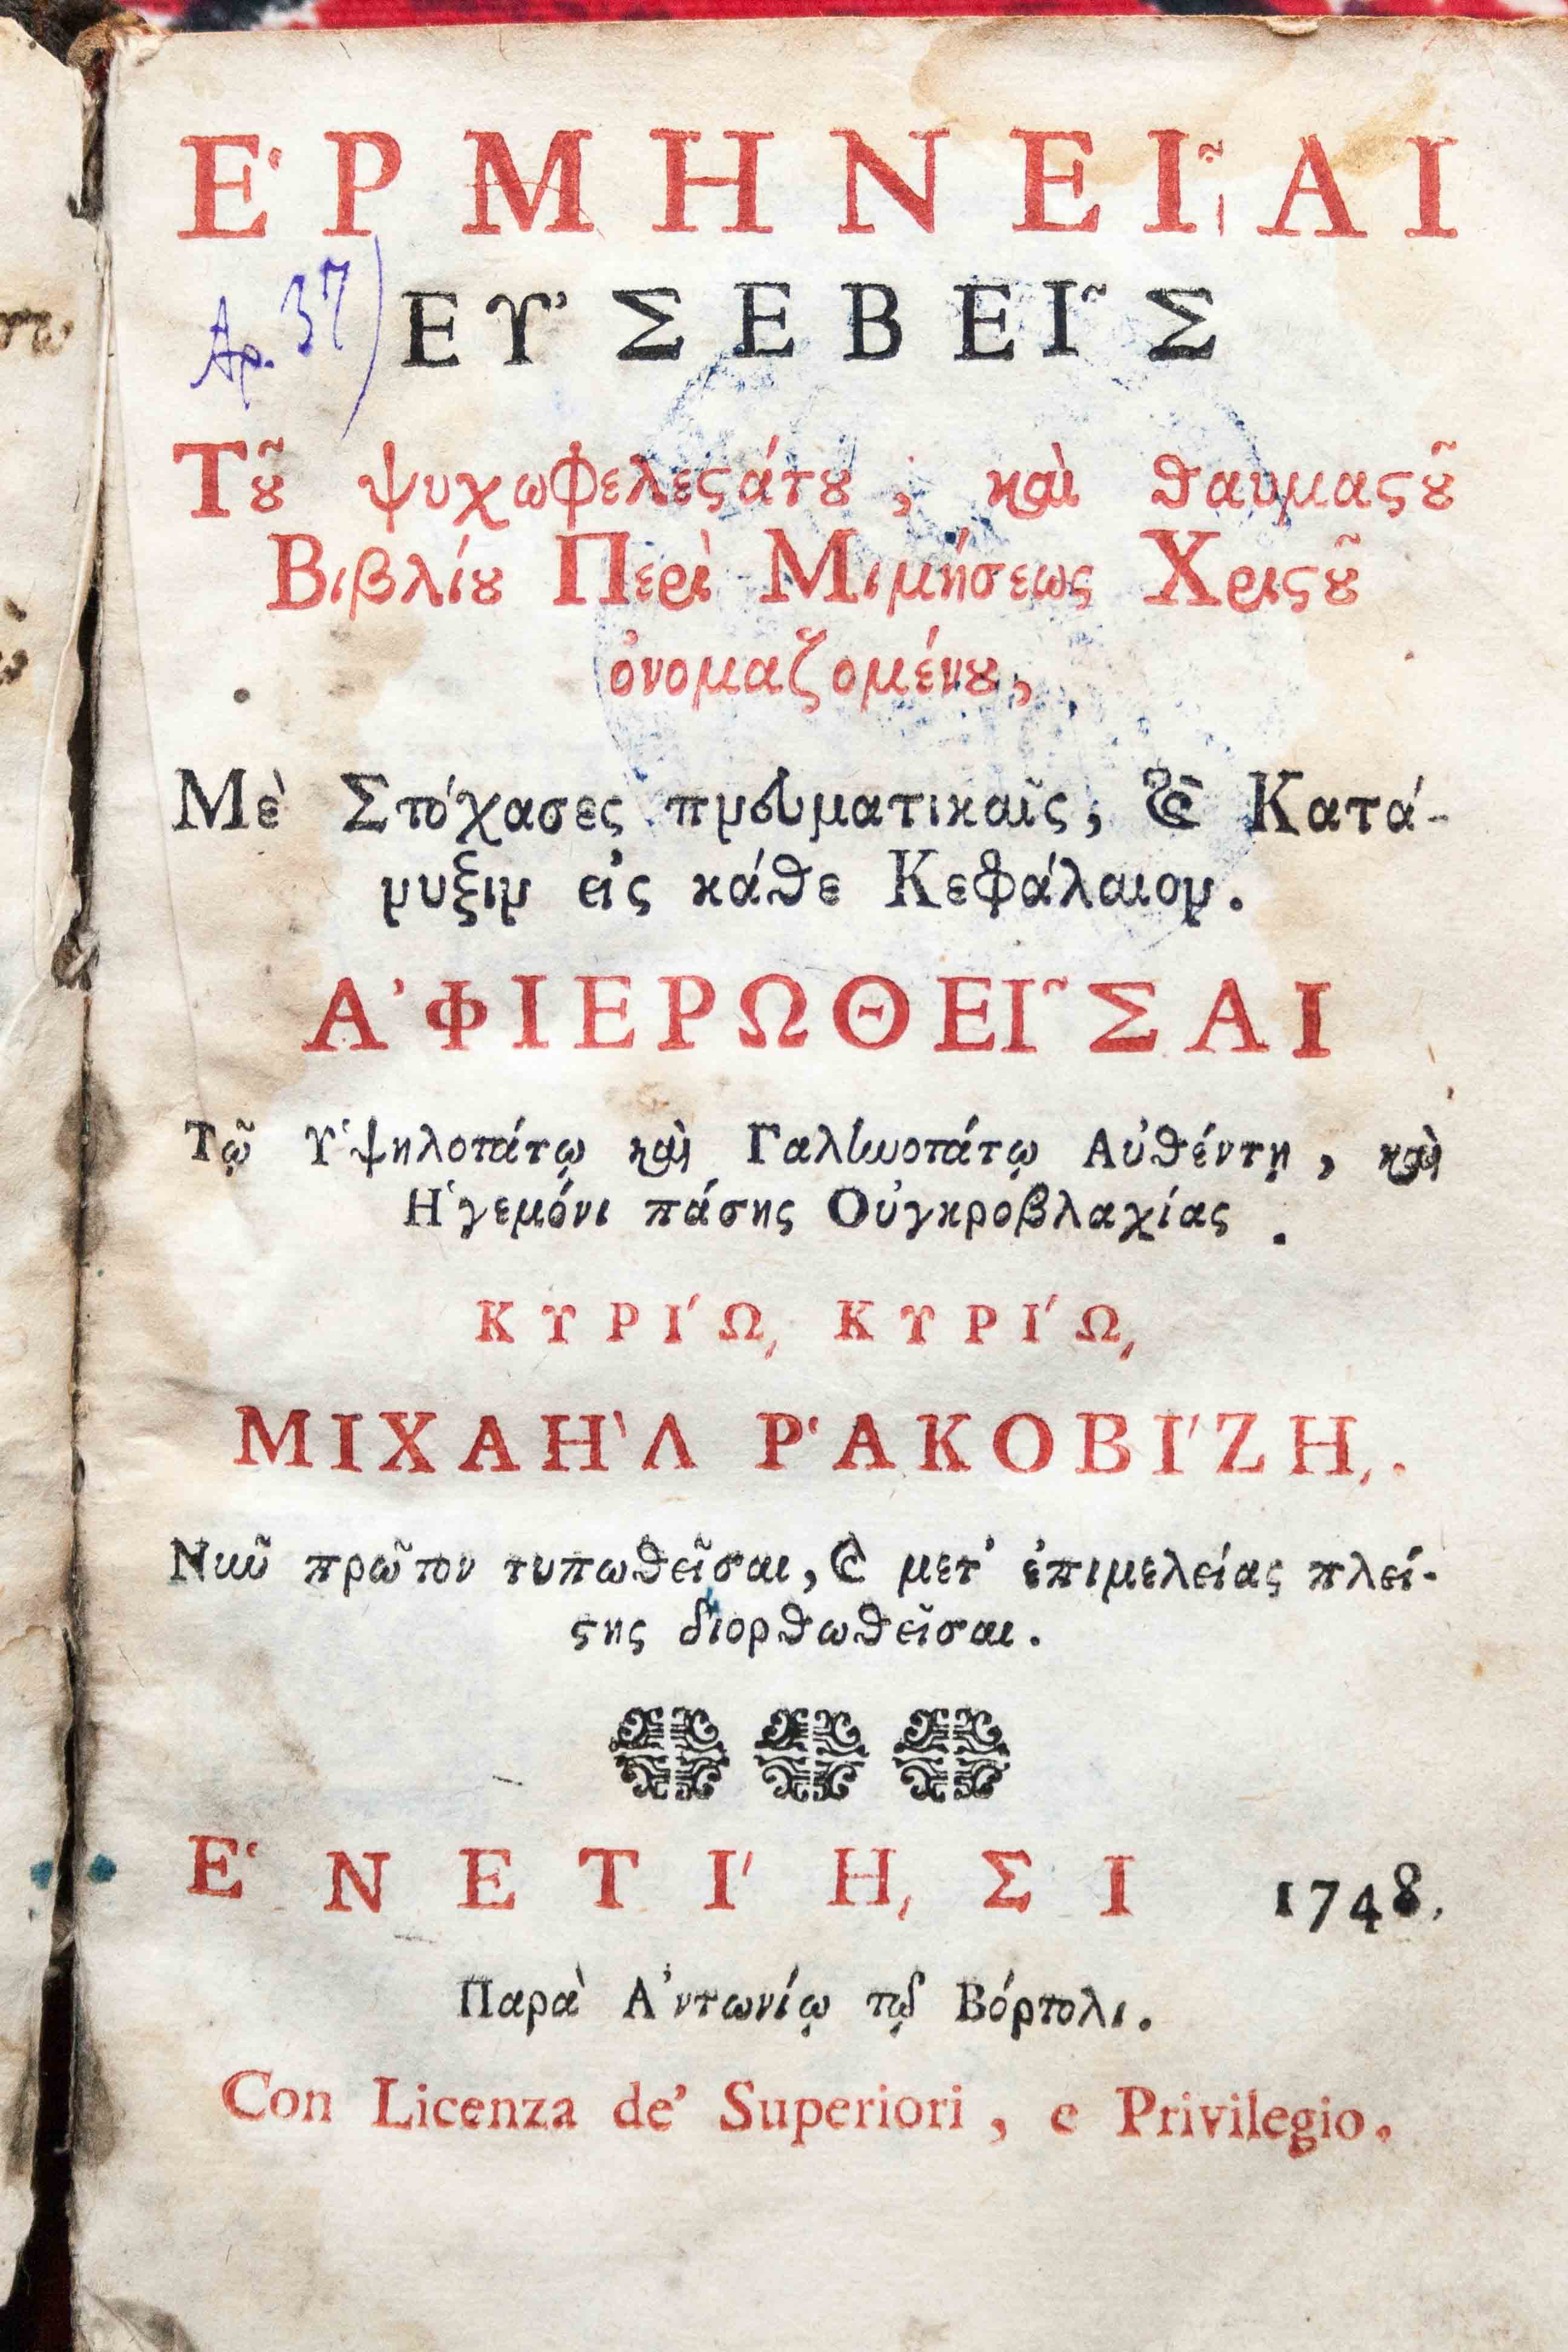 ἙΡΜΗΝΕΙ͂ΑΙ
Αρ. 37)
ΕΥ̓ΣΕΒΕΙ͂Σ
Τȣ͂ ψυχωφελεϛάτȣ, καὶ θαυμαϛȣ͂
Βιβλίȣ Περὶ Μιμήσεως Χριϛȣ͂
ὀνομαζομένȣ,
Μὲ Στόχασες πνευματικαῖς, & Κατά-
νυξιν εἰς κάθε Κεφάλαιον.
ἈΦΙΕΡΩΘΕΙ͂ΣΑΙ
Τῷ Ὑψηλοτάτῳ καὶ Γαληνοτάτῳ Αὐθέντῃ, καὶ
Ἡγεμόνι πάσης Οὐγκροβλαχίας.
ΚΥΡΙ´ῼ ΚΥΡΙ´ῼ
ΜΙΧΑΗ`Λ ῬΑΚΟΒΙ´Ζῌ.
Νιωῦ πρῶτον τυπωθεῖσαι, & μετ' ἐπιμελείας πλεί-
ϛης διορθωθεῖσαι.
ἙΝΕΤΙ´ῌΣΙ 1748.
Παρὰ Ἀντωνίῳ τῷ Βόρτολι.
Con Licenza de' Superiori, e Privilegio.